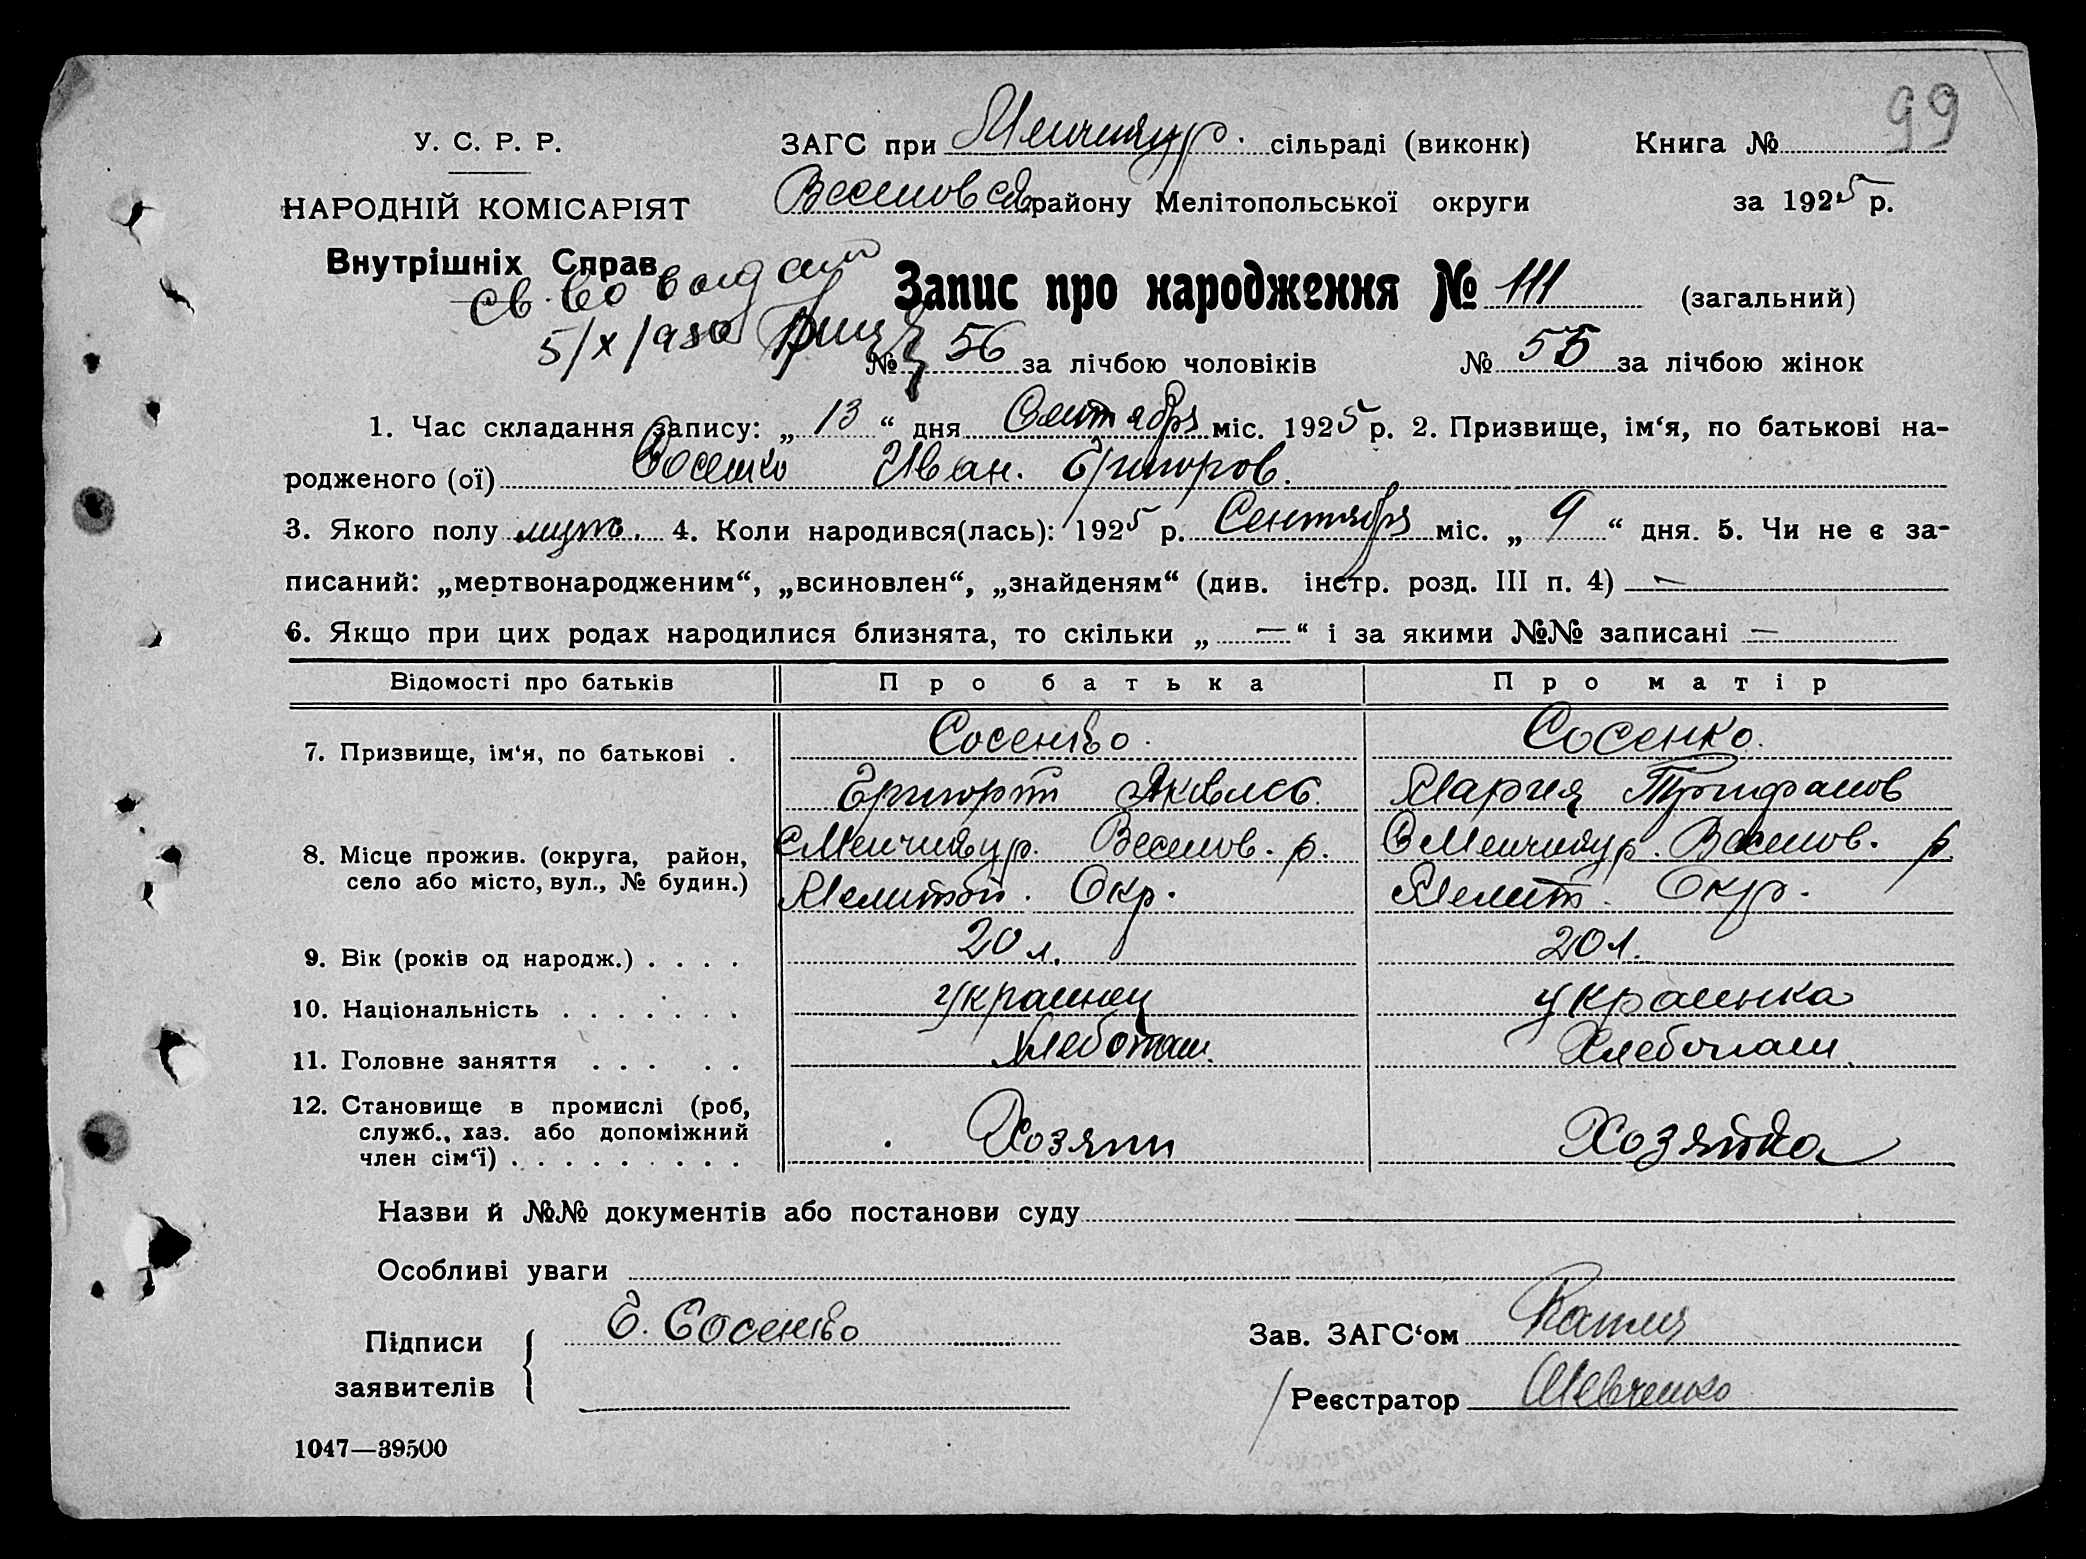 99
У. С. Р. Р. ЗАГС при Менчикур. сільраді (виконк) Книга №
НАРОДНІЙ КОМІСАРІЯТ Веселовск району Мелітопольської округи за 1925 р.
Внутрішніх Справ
св-во выдан
5/X/930
Запис про народження № 111 (загальний)
№ 56 за лічбою чоловіків № 55 за лічбою жінок
1. Час складання запису: „ 13 “ дня Сентября міс. 1925 р. 2. Призвище, ім‘я, по батькові на-
родженого (ої) Сосенко Иван. Григоров.
3. Якого полу муж. 4. Коли народився(лась): 1925 р. Сентября міс. „ 9 “ дня. 5. Чи не є за-
писаний: „мертвонародженим“, „всиновлен“, „знайденям“ (див. інстр. розд. III п. 4) —
6. Якщо при цих родах народилися близнята, то скільки „ — “ і за якими №№ записані —
Відомості про батьків Про батька Про матір
7. Призвище, ім‘я, по батькові . Сосенко. Сосенко.
Григорий Яковлев. Мария Трифанов
8. Місце прожив. (округа, район, с Менчикур. Веселов. р. С Менчикур. Веселов. р.
село або місто, вул., № будин.) Мелитоп. Окр. Мелит. Окр.
9. Вік (років од народж.) . . . . 20 л. 20 л.
10. Національність . . . . . . . украинец украинка
11. Головне заняття . . . . . Хлебопаш. Хлебопаш.
12. Становище в промислі (роб, Хозяин Хозяйка
служб., хаз. або допоміжний
член сім‘ї) . . . . . . . . .
Назви й №№ документів або постанови суду
Особливі уваги
Підписи Г. Сосенко Зав. ЗАГС‘ом
заявителів Реєстратор Шевченко
1047—39500